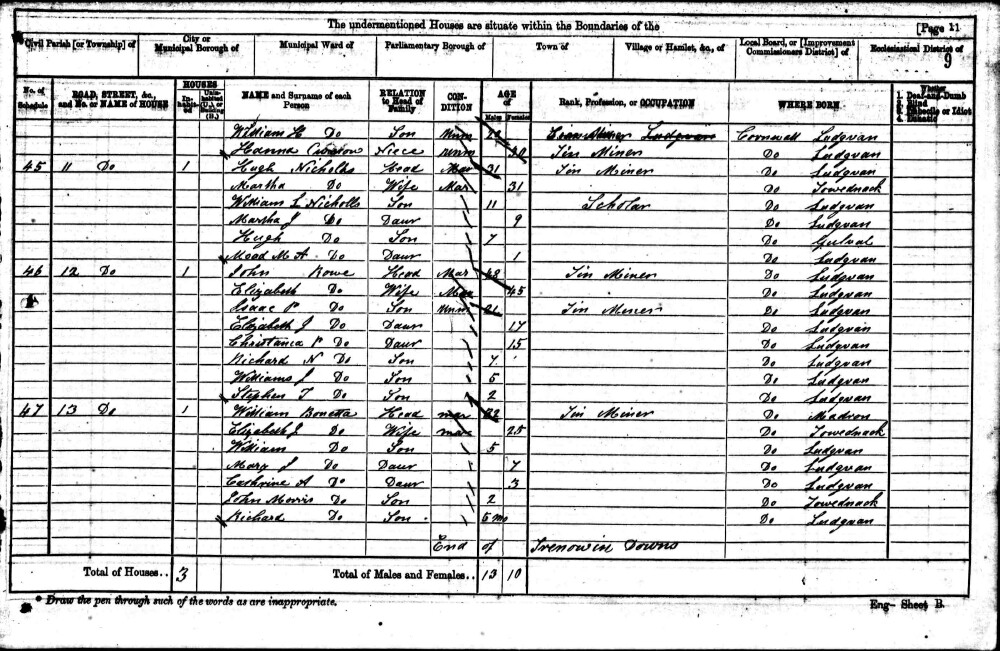 The undermentioned Houses are situate within the Boundaries of the
[Page 11
Civil Parish [or Township] of
City or Municipal Borough of
Municipal Ward of
Parliamentary Borough of
Town of
Village or Hamlet, &c., of
Local Board, or [Improvement Commissioners District] of
Ecclesiastical District of
9
No. of Schedule
ROAD, STREET, &c., and No. or NAME of HOUSE
HOUSES
Inhabited
Uninhabited (U.) or Building (B.)
NAME and Surname of each Person
RELATION to Head of Family
CONDITION
AGE of
Males
Females
Rank, Profession, or OCCUPATION
WHERE BORN
Whether
1. Deaf-and-Dumb
2. Blind
3. Imbecile or Idiot
4. Lunatic
William H Do Son Unm Tin Miner Ludgvan Cornwall Ludgvan
Hanna Niece Unm 20 Tin Miner Do Ludgvan
45 11 Do 1 Hugh Nicholls Head Mar 31 Tin Miner Do Ludgvan
Martha Do Wife Mar 31 Do Towednack
William L Nicholls Son 11 Scholar Do Ludgvan
Martha J Do Daur 9 Do Ludgvan
Hugh Do Son 7 Do Gulval
Mead M A Do Daur 1 Do Ludgvan
46 12 Do 1 John Rowe Head Mar 48 Tin Miner Do Ludgvan
Elizabeth Do Wife Mar 45 Do Ludgvan
Isaac P Do Son Unm 21 Tin Miner Do Ludgvan
Elizabeth J Do Daur 17 Do Ludgvan
Christianea P Do Daur 15 Do Ludgvan
Richard N Do Son 7 Do Ludgvan
Williams J Do Son 5 Do Ludgvan
Stephen T Do Son 2 Do Ludgvan
47 13 Do 1 William Bonetta Head mar Tin Miner Do Madron
Elizabeth J Do Wife mar 25 Do Towednack
William Do Son 5 Do Ludgvan
Mary J Do Daur 7 Do Ludgvan
Cathrine A Do Daur 3 Do Ludgvan
John Morris Do Son 2 Do Towednack
Richard Do Son 5 mo Do Ludgvan
End of Trenowin Downs
Total of Houses.. 3
Total of Males and Females.. 13 10
* Draw the pen through such of the words as are inappropriate.
Eng- Sheet B.